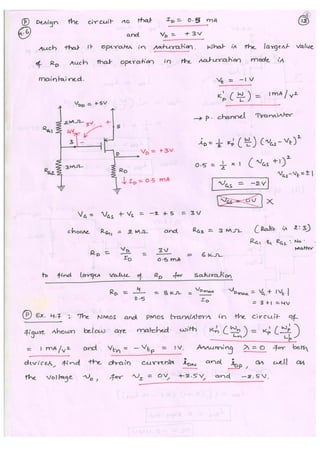 (P) Design the circuit so that I_D = 0.5 mA (13)
4.6 and V_D = +3V
such that it operates in saturation. What is the largest value
of R_D such that operation in the saturation mode is
maintained.
V_t = -1V
K'_p (W/L) = 1mA/V²
→ P. channel Transistor
V_DD = +5V
R_G1 2MΩ 2V
S
3 D V_D = +3V
R_G2 3MΩ R_D
↓ I_D = 0.5 mA
i_D = 1/2 K'_p (W/L) (V_GS - V_t)²
0.5 = 1/2 × 1 (V_GS + 1)²
V_GS - V_t = ±1
V_GS = -2V
V_GS = 0V X
V_G = V_GS + V_S = -2 + 5 = 3V
choose R_G1 = 2MΩ and R_G2 = 3MΩ (Ratio is 2:3)
R_G1 & R_G2: No. Matter
R_D = V_D / I_D = 3V / 0.5 mA = 6KΩ
to find larger value of R_D for saturation
R_D = 4 / 0.5 = 8KΩ = V_Dmax / I_D V_Dmax = V_G + |V_t|
= 3 + 1 = 4V
(P) EX. 4.7 : The NMOS and PMOS transistors in the circuit of
figure shown below are matched with K'_n (W_n/L_n) = K'_p (W_p/L_p)
= 1 mA/V² and V_tn = -V_tp = 1V. Assuming λ = 0 for both
devices, find the drain currents i_DN and i_DP, as well as
the voltage V_O, for V_I = 0V, +2.5V, and -2.5V.